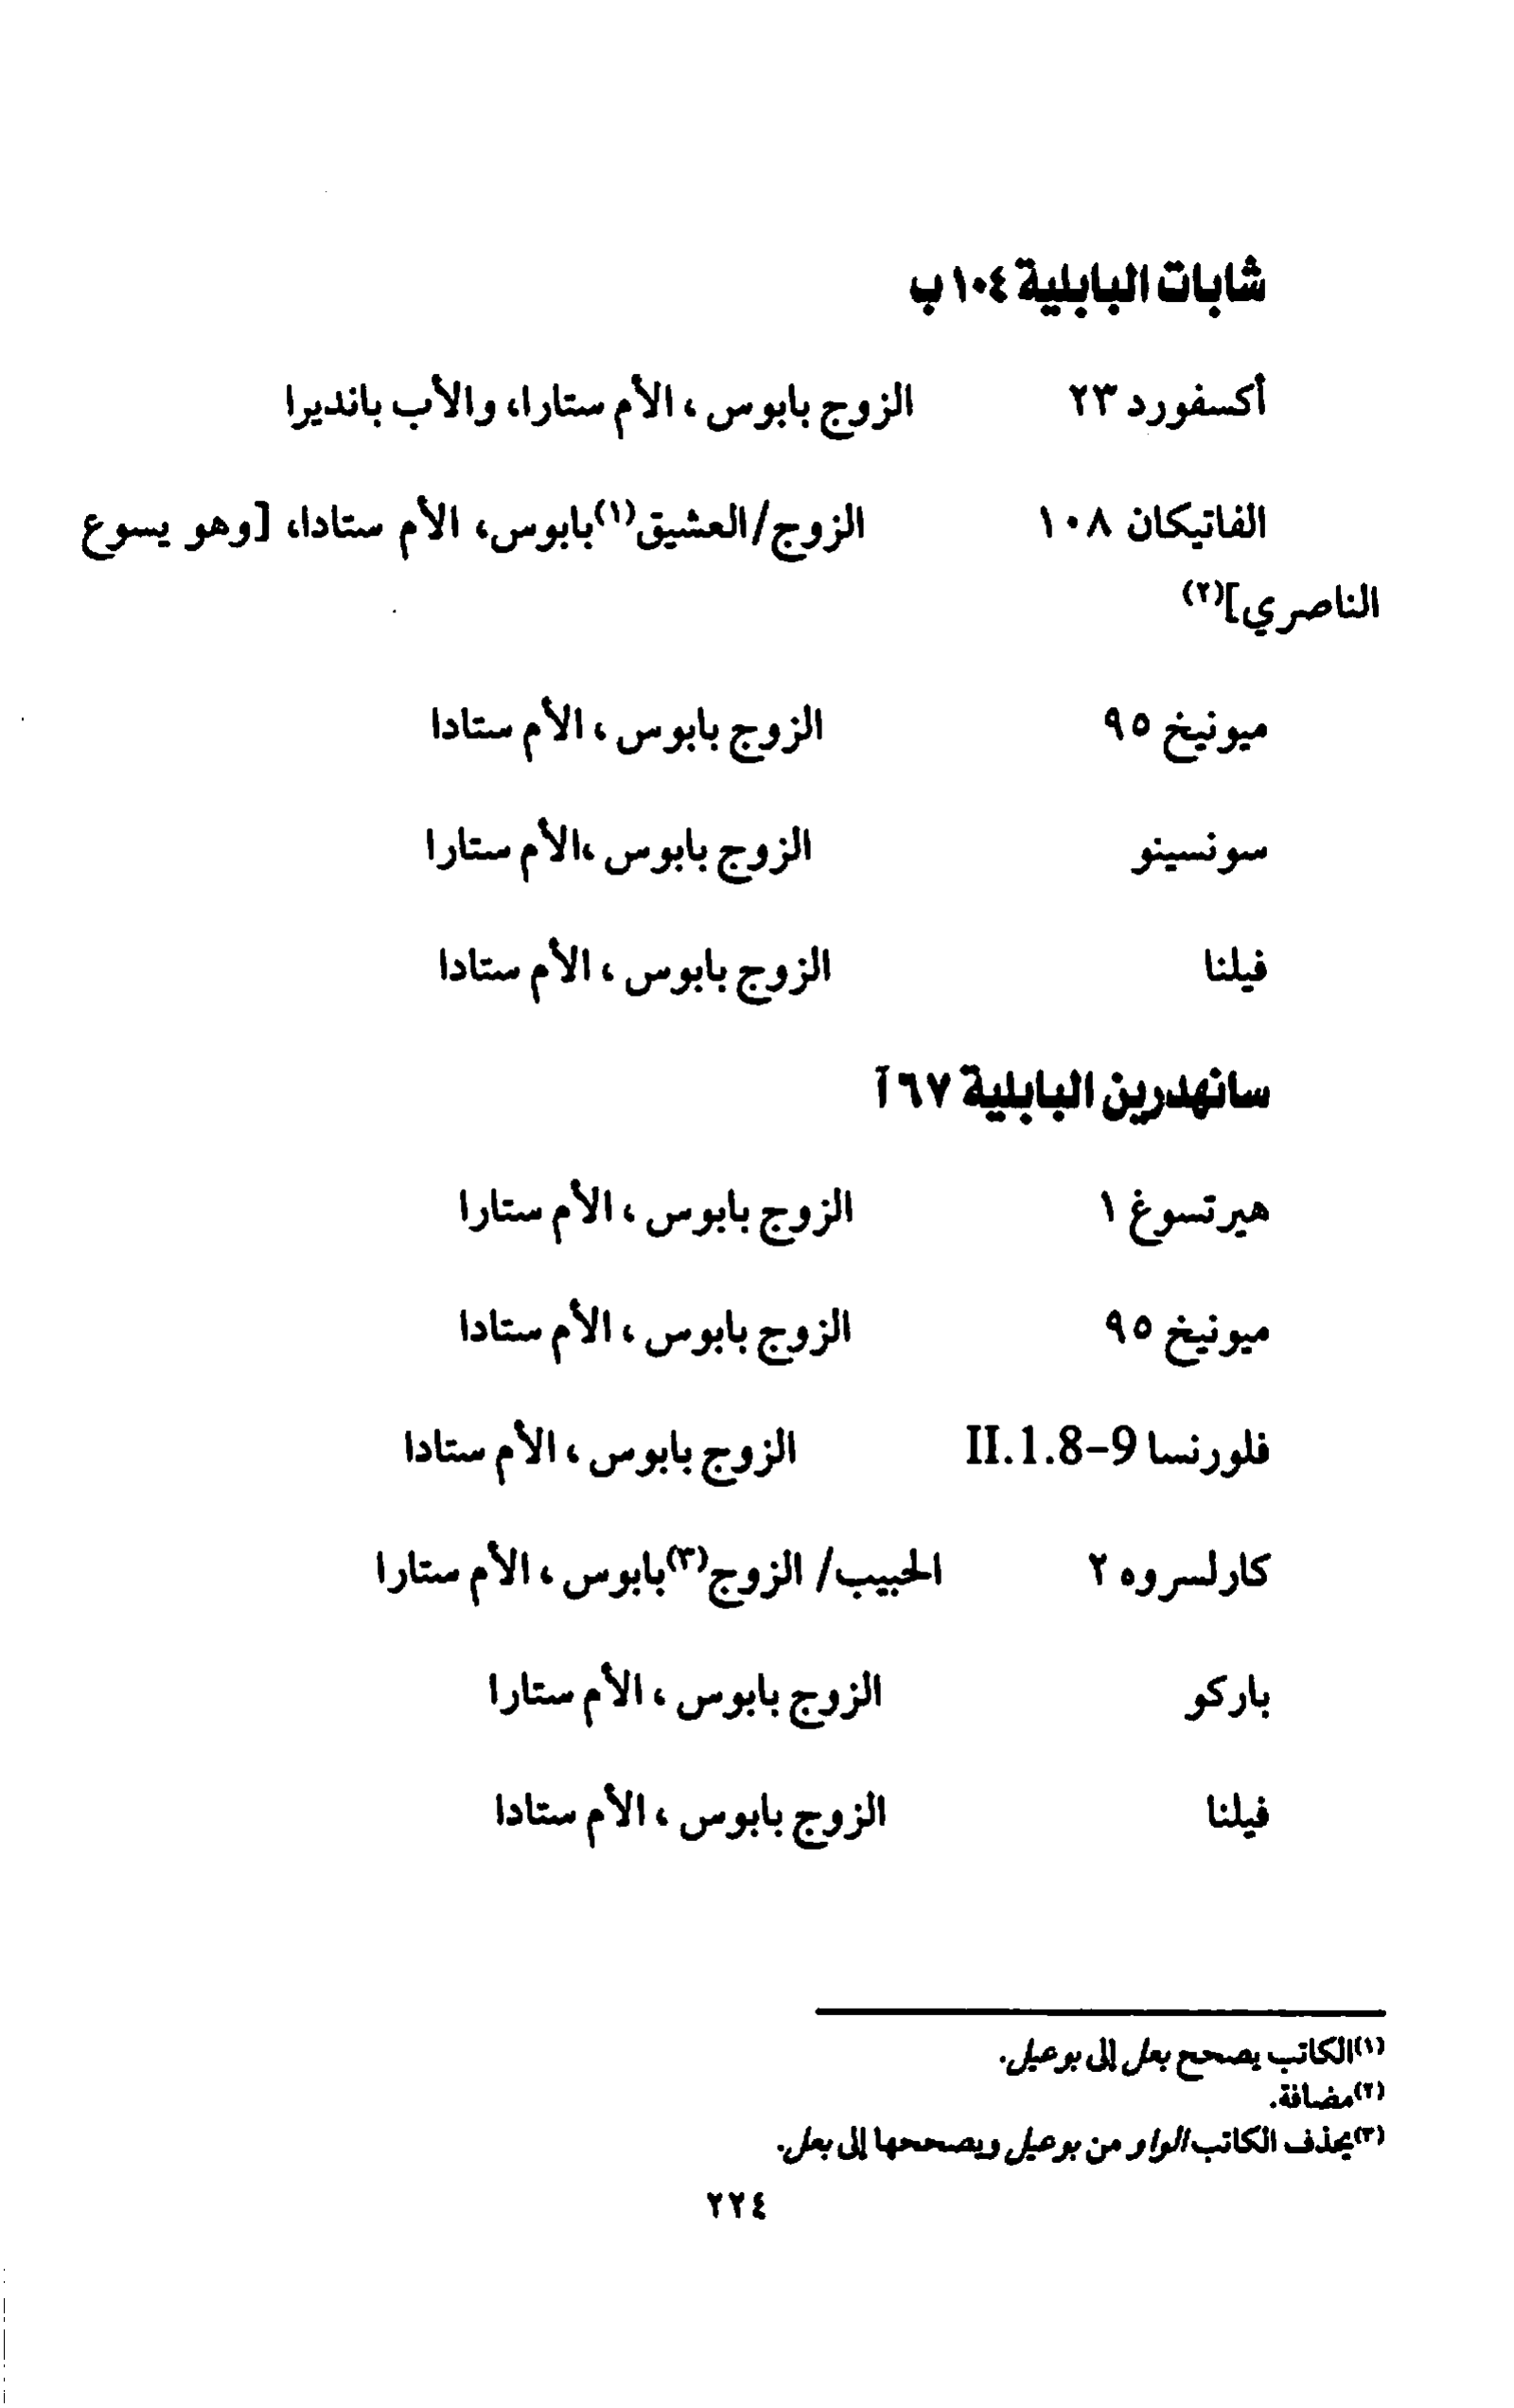 شابات البابلية ١٠٤ ب
أكسفورد ٢٣ الزوج بابوس، الأم ستارا، والأب بانديرا
الفاتيكان ١٠٨ الزوج/العشيق(١)بابوس، الأم ستادا، [وهو يسوع
الناصري](٢)
ميونيخ ٩٥ الزوج بابوس، الأم ستادا
سونسينو الزوج بابوس، الأم ستارا
فيلنا الزوج بابوس، الأم ستادا
سانهدرين البابلية ٦٧ آ
هيرتسوغ ١ الزوج بابوس، الأم ستارا
ميونيخ ٩٥ الزوج بابوس، الأم ستادا
فلورنسا II.1.8-9 الزوج بابوس، الأم ستادا
كارلسروه ٢ الحبيب/ الزوج(٣)بابوس، الأم ستارا
باركو الزوج بابوس، الأم ستارا
فيلنا الزوج بابوس، الأم ستادا
(١)الكاتب يصحح بعل إلى بوعيل.
(٢)مضافة.
(٣)يحذف الكاتب الواو من بوعيل ويصححها إلى بعل.
٢٢٤